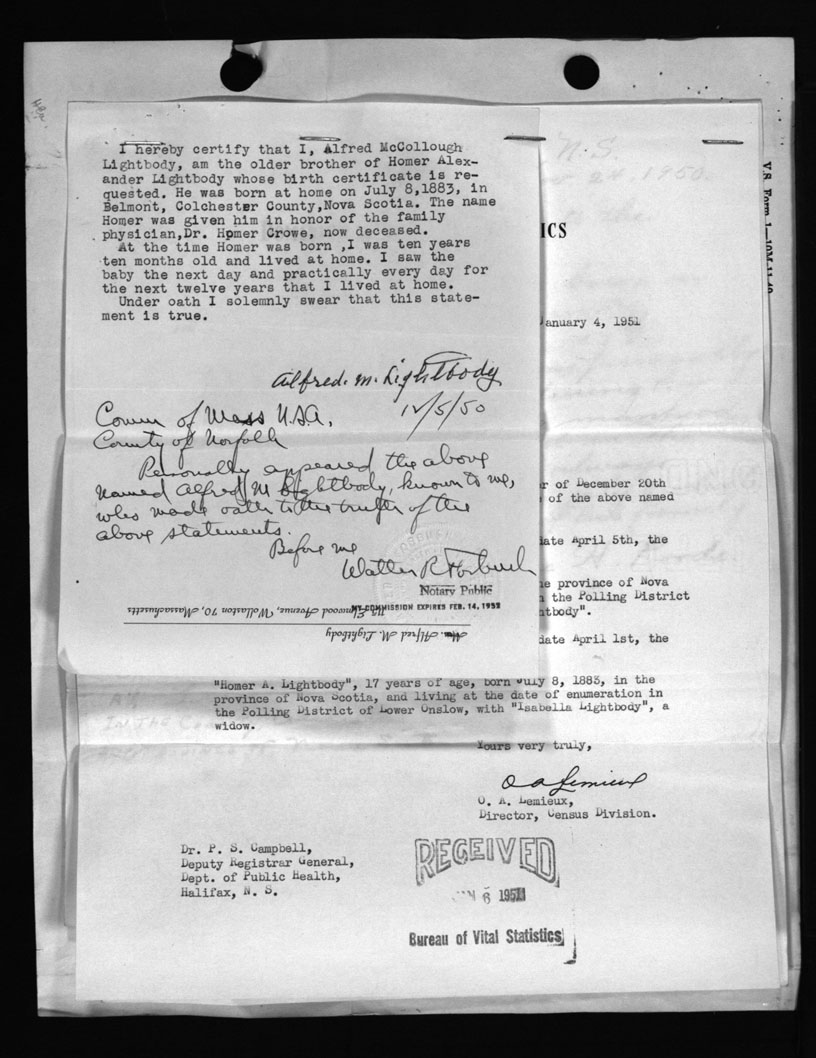 I hereby certify that I, Alfred McCollough
Lightbody, am the older brother of Homer Alex-
ander Lightbody whose birth certificate is re-
quested. He was born at home on July 8,1883, in
Belmont, Colchester County,Nova Scotia. The name
Homer was given him in honor of the family
physician,Dr. Homer Crowe, now deceased.
At the time Homer was born ,I was ten years
ten months old and lived at home. I saw the
baby the next day and practically every day for
the next twelve years that I lived at home.
Under oath I solemnly swear that this state-
ment is true.
Alfred. M. Lightbody
12/5/50
Comm of Mass U.S.A.
County of Norfolk
Personally appeared the above
named Alfred M Lightbody, known to me,
who made oath to the truth of the
above statements.
Before me
Walter R Forbush
Notary Public
MY COMMISSION EXPIRES FEB. 14, 1952
Elmwood Avenue, Wollaston 70, Massachusetts
Mrs. Alfred M. Lightbody
N.S.
24, 1950.
V.S. Form 1
ICS
anuary 4, 1951
r of December 20th
of the above named
ate April 5th, the
e province of Nova
the Polling District
tbody".
date April 1st, the
"Homer A. Lightbody", 17 years of age, born July 8, 1883, in the
province of Nova Scotia, and living at the date of enumeration in
the Polling District of Lower Onslow, with "Isabella Lightbody", a
widow.
Yours very truly,
O A Lemieux
O. A. Lemieux,
Director, Census Division.
Dr. P. S. Campbell,
Deputy Registrar General,
Dept. of Public Health,
Halifax, N. S.
RECEIVED
6 1951
Bureau of Vital Statistics